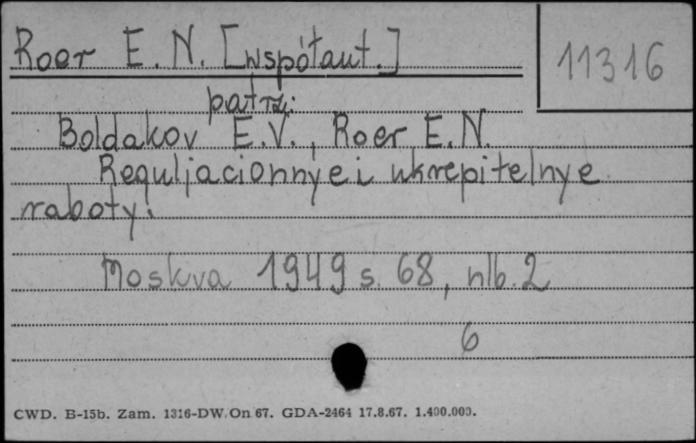 Roer E. N. [współaut.]
11316
patrz:
Boldakov E.V., Roer E.N.
Reguljacionnye i ukrepitelnye
raboty.
Moskva 1949 s. 68, nlb. 2
6
CWD. B-15b. Zam. 1316-DW/On 67. GDA-2464 17.8.67. 1.400.000.